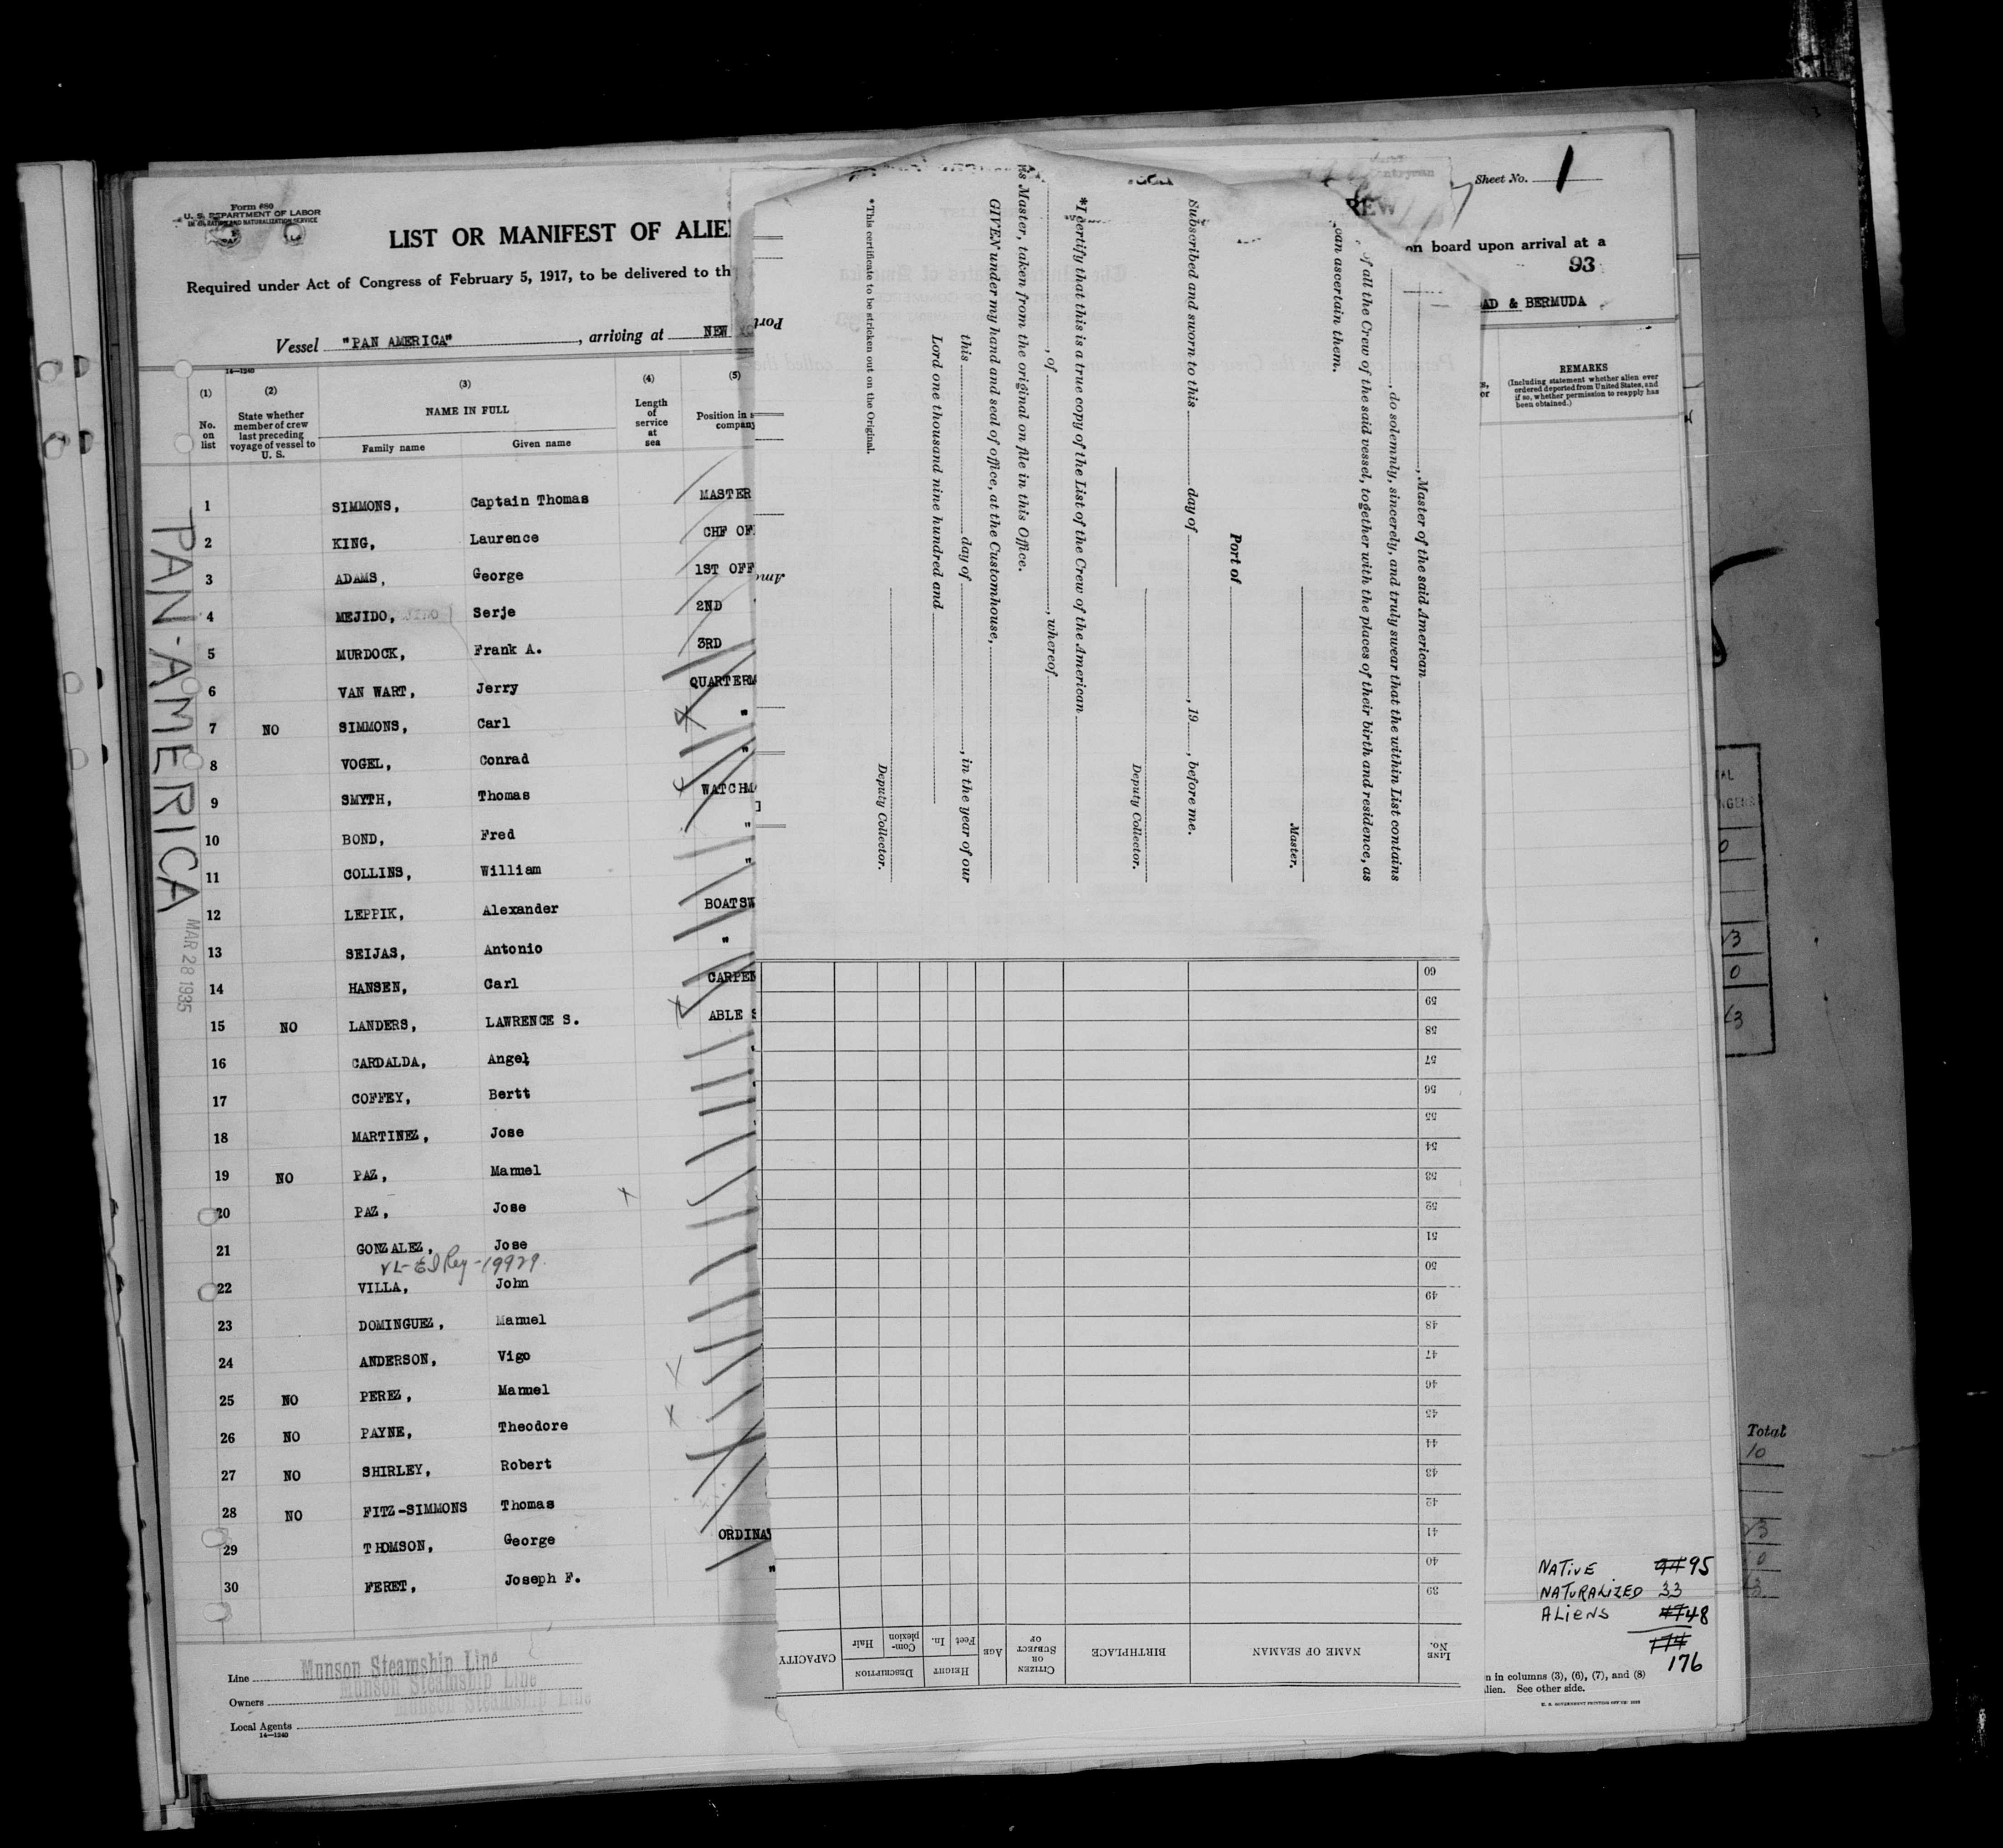 Form 680
U. S. DEPARTMENT OF LABOR
IMMIGRATION AND NATURALIZATION SERVICE
LIST OR MANIFEST OF ALIE
REW
Sheet No. 1
Required under Act of Congress of February 5, 1917, to be delivered to th
on board upon arrival at a
93
Vessel "PAN AMERICA", arriving at NEW
AD & BERMUDA
14—1240
(1) No. on list
(2) State whether member of crew last preceding voyage of vessel to U. S.
(3) NAME IN FULL
Family name Given name
(4) Length of service at sea
(5) Position in s company
REMARKS
(Including statement whether alien ever ordered deported from United States, and if so, whether permission to reapply has been obtained.)
1 SIMMONS, Captain Thomas MASTER
2 KING, Laurence CHF OF
3 ADAMS, George 1ST OFF
4 MEJIDO, Serje 2ND
5 MURDOCK, Frank A. 3RD
6 VAN WART, Jerry QUARTERM
7 NO SIMMONS, Carl "
8 VOGEL, Conrad "
9 SMYTH, Thomas WATCHM
10 BOND, Fred "
11 COLLINS, William "
12 LEPPIK, Alexander BOATSW
13 SEIJAS, Antonio "
14 HANSEN, Carl CARPEN
15 NO LANDERS, LAWRENCE S. ABLE S
16 CARDALDA, Angel
17 COFFEY, Bertt
18 MARTINEZ, Jose
19 NO PAZ, Manuel
20 PAZ, Jose
21 GONZALEZ, Jose
VL-El Rey-19929
22 VILLA, John
23 DOMINGUEZ, Manuel
24 ANDERSON, Vigo
25 NO PEREZ, Manuel
26 NO PAYNE, Theodore
27 NO SHIRLEY, Robert
28 NO FITZ-SIMMONS Thomas
29 THOMSON, George ORDINA
30 FERET, Joseph F. "
PAN-AMERICA
MAR 28 1935
Line Munson Steamship Line
Owners Munson Steamship Line
Local Agents Munson Steamship Line
14—1240
, Master of the said American
, do solemnly, sincerely, and truly swear that the within List contains
of all the Crew of the said vessel, together with the places of their birth and residence, as
can ascertain them.
Master.
Port of
Subscribed and sworn to this day of , 19 , before me.
Deputy Collector.
*I certify that this is a true copy of the List of the Crew of the American
, of , whereof
is Master, taken from the original on file in this Office.
GIVEN under my hand and seal of office, at the Customhouse,
this day of , in the year of our
Lord one thousand nine hundred and
Deputy Collector.
*This certificate to be stricken out on the Original.
LINE No.
NAME OF SEAMAN
BIRTHPLACE
CITIZEN OR SUBJECT OF
AGE
HEIGHT
Feet In.
DESCRIPTION
Complexion Hair
CAPACITY
39
40
41
42
43
44
45
46
47
48
49
50
51
52
53
54
55
56
57
58
59
60
NATIVE 95
NATURALIZED 33
ALIENS 48
174
176
n in columns (3), (6), (7), and (8)
lien. See other side.
U. S. GOVERNMENT PRINTING OFFICE
Total
10